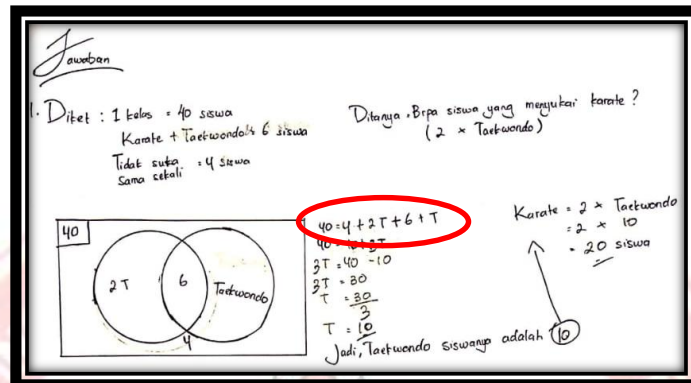 Jawaban
1. Diket : 1 kelas = 40 siswa
Karate + Taekwondo = 6 siswa
Tidak suka = 4 siswa
sama sekali
Ditanya : Brpa siswa yang menyukai karate ?
(2 × Taekwondo)
40
2T
6
Taekwondo
4
40 = 4 + 2T + 6 + T
40 = 10 + 3T
3T = 40 - 10
3T = 30
T = 30
3
T = 10
Jadi, Taekwondo siswanya adalah 10
Karate = 2 × Taekwondo
= 2 × 10
= 20 siswa